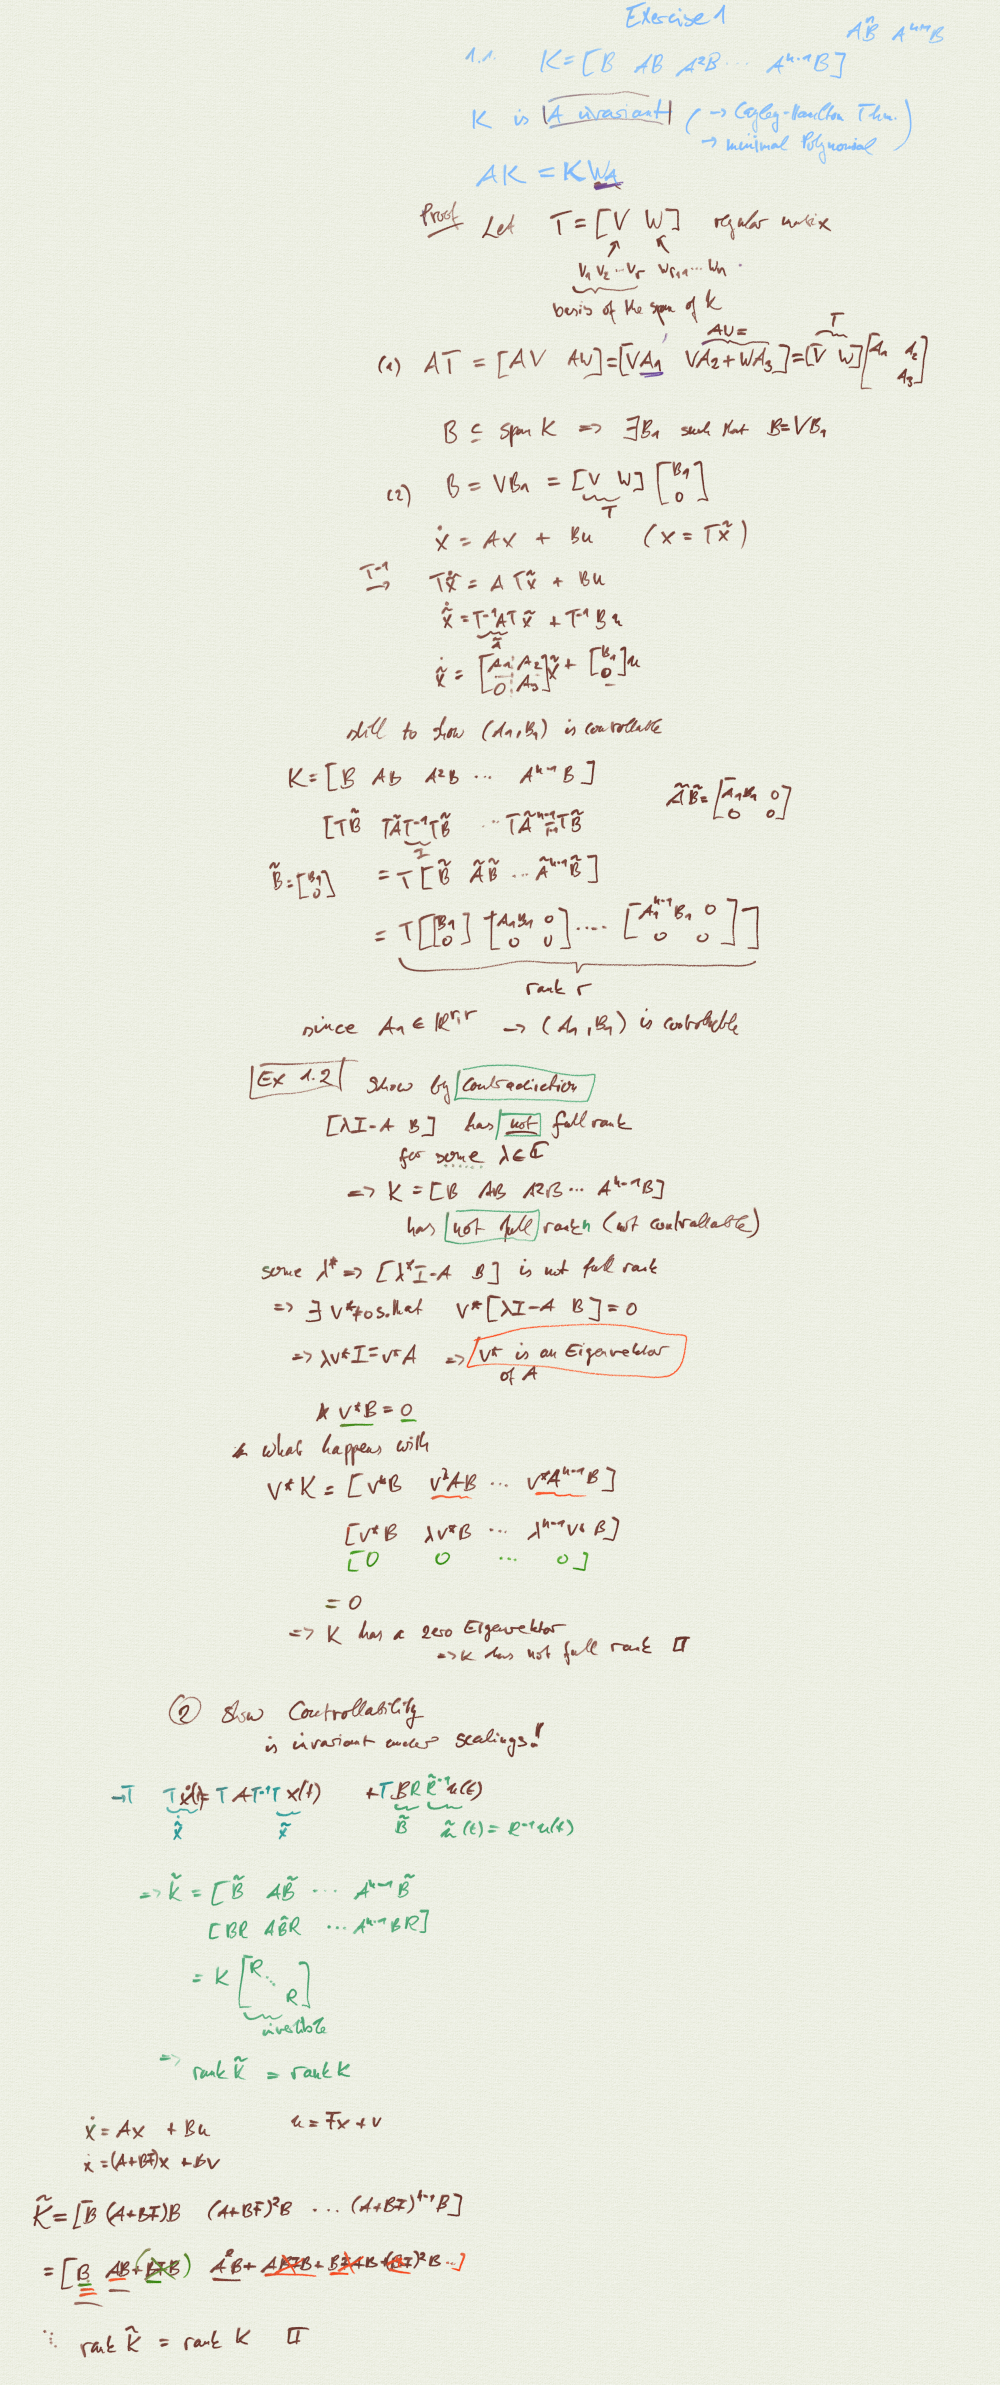 Exercise 1
1.1. K = [B AB A²B ... Aⁿ⁻¹B] AⁿB Aⁿ⁺¹B
K is A invariant (→ Cayley-Hamilton Thm.
→ minimal Polynomial)
AK = KW_A
Proof Let T = [V W] regular matrix
v₁ v₂ ... vᵣ wᵣ₊₁ ... wₙ
basis of the span of K
AW= T
(1) AT = [AV AW] = [VA₁ VA₂+WA₃] = [V W] [A₁ A₂
A₃]
B ⊆ span K => ∃B₁ such that B=VB₁
(2) B = VB₁ = [V W] [B₁
0]
T
ẋ = Ax + Bu (x = Tx̃)
T⁻¹ → Tx̃̇ = A Tx̃ + Bu
x̃̇ = T⁻¹AT x̃ + T⁻¹Bu
Ã
x̃̇ = [A₁ A₂
0 A₃] x̃ + [B₁
0] u
still to show (A₁,B₁) is controllable
K = [B AB A²B ... Aⁿ⁻¹B]
ÃB̃ = [A₁B₁ 0
0 0]
[TB̃ TÃT⁻¹TB̃ ... TÃⁿ⁻¹T⁻¹TB̃
I
B̃ = [B₁
0] = T[B̃ ÃB̃ ... Ãⁿ⁻¹B̃]
= T[[B₁
0] [A₁B₁ 0
0 0] .... [A₁ⁿ⁻¹B₁ 0
0 0]]
rank r
since A₁ ∈ ℝʳ'ʳ → (A₁,B₁) is controllable
Ex 1.2 Show by contradiction
[λI-A B] has not full rank
for some λ∈ℂ
=> K = [B AB A²B ... Aⁿ⁻¹B]
has not full rank n (not controllable)
some λ* => [λ*I-A B] is not full rank
=> ∃ v*≠0 s.that v*[λI-A B] = 0
=> λv*I = v*A => v* is an Eigenvektor
of A
v*B = 0
what happens with
v*K = [v*B v*AB ... v*Aⁿ⁻¹B]
[v*B λv*B ... λⁿ⁻¹v*B]
[0 0 ... 0]
= 0
=> K has a zero Eigenvektor
=> K has not full rank □
② Show Controllability
is invariant under scalings!!
→T Tẋ(t) = T A T⁻¹T x(t) + T B R R⁻¹u(t)
x̃̇ x̃ B̃ ũ(t) = R⁻¹u(t)
=> K̃ = [B̃ AB̃ ... Aⁿ⁻¹B̃
[BR ABR ... Aⁿ⁻¹BR]
= K [R ...
R]
invertible
=> rank K̃ = rank K
ẋ = Ax + Bu u = Fx + v
ẋ = (A+BF)x + Bv
K̃ = [B (A+BF)B (A+BF)²B ... (A+BF)ⁿ⁻¹B]
= [B AB+(BFB) A²B + ABFB + BFAB + (BF)²B ...]
rank K̃ = rank K □